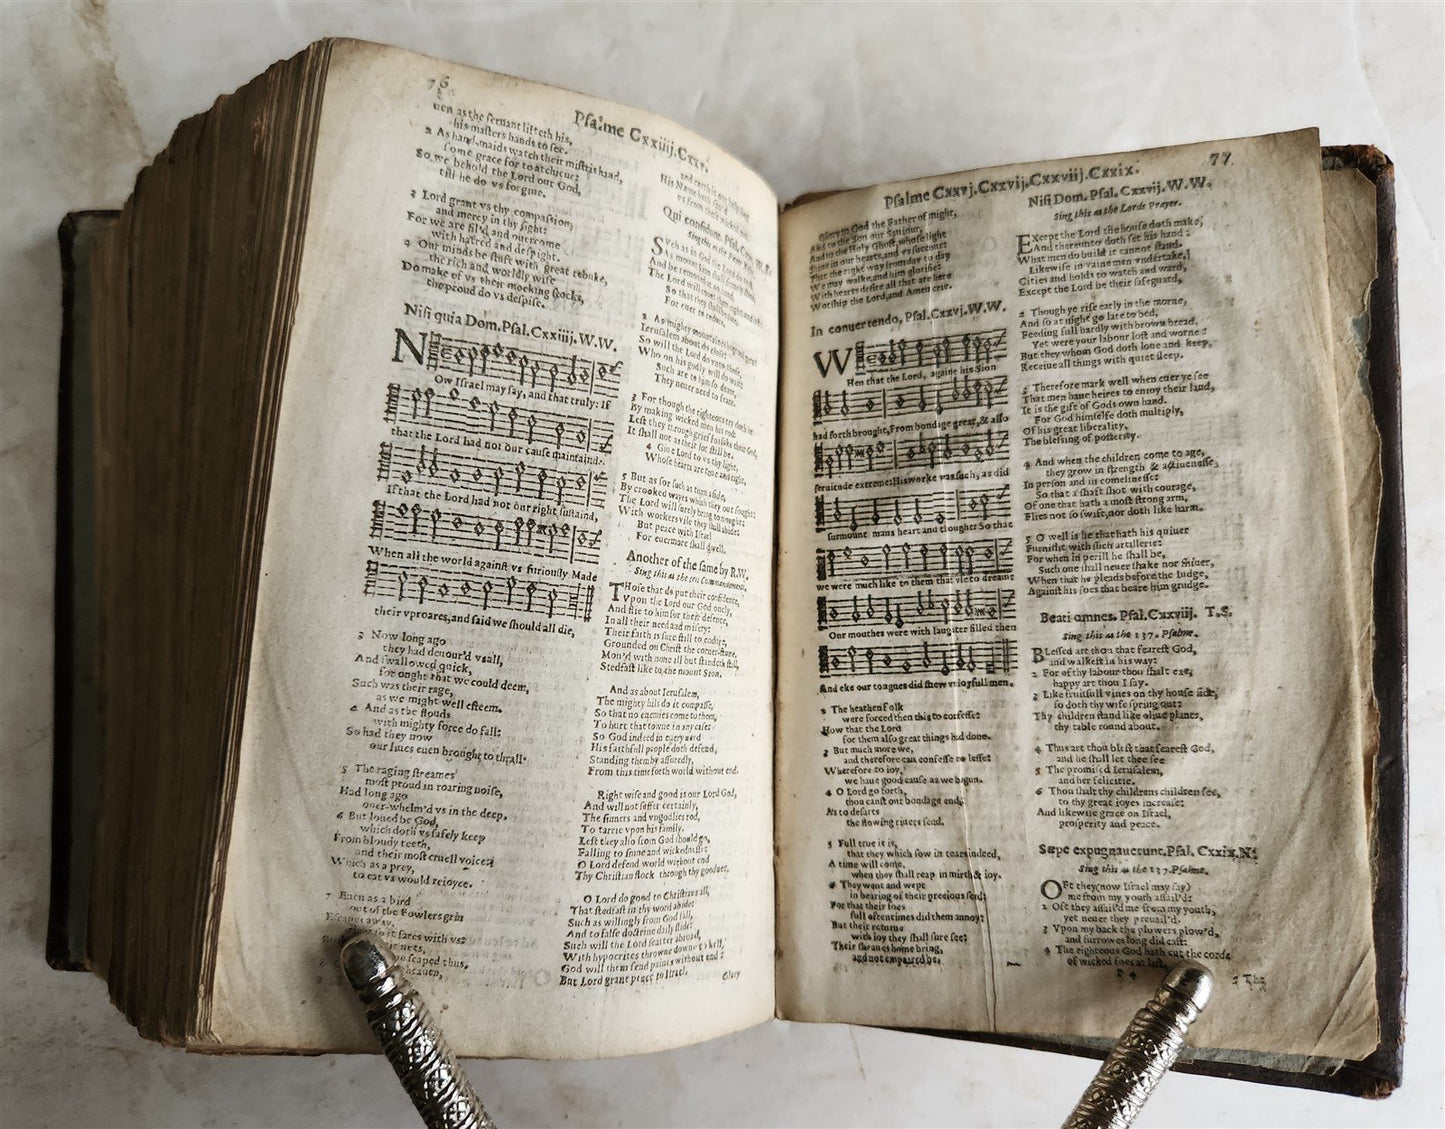 76
Psalme Cxxiiij.Cxxv.
uen as the seruant listeth his,
his masters hands to see.
2 As hand-maids watch their mistris hand,
some grace for to atchieue:
So we behold the Lord our God,
till he do vs forgiue.
3 Lord grant vs thy compassion,
and mercy in thy sight:
For we are fil'd and ouercome
with hatred and despight.
4 Our minds be stuft with great rebuke,
the rich and worldly wise
Do make of vs their mocking stocks,
the proud do vs despise.
Nisi quia Dom. Psal. Cxxiiij. W.W.
NOw Israel may say, and that truly: If
that the Lord had not our cause maintaind:
If that the Lord had not our right sustaind,
When all the world against vs furiously Made
their vproares, and said we should all die,
3 Now long ago
they had deuour'd vs all,
And swallowed quick,
for ought that we could deem,
Such was their rage,
as we might well esteem.
4 And as the flouds
with mighty force do fall:
So had they now
our liues euen brought to thrall:
5 The raging streames
most proud in roaring noise,
Had long ago
ouer-whelm'd vs in the deep.
6 But loued be God,
which doth vs safely keep
From bloudy teeth,
and their most cruell voice;
Which as a prey,
to eat vs would reioyce.
7 Euen as a bird
out of the Fowlers grin
Escapes away,
so it fares with vs:
nets,
scaped thus,
His Name
Qui confidunt. Psal. Cxxv.
SVch as in God the Lord do
As mount Sion shall
And be remoued at no
The Lord will count them right and
So that they shall be sure
For euer to endure.
2 As mighty mountaines
Ierusalem about do close:
So will the Lord do vnto those,
Who on his godly will do waite
Such are to him so deare,
They neuer need to feare.
3 For though the righteous try doth he
By making wicked men his rod:
Lest they through grief forsake their God,
It shall not as their lot still be.
4 Giue Lord to vs thy light,
Whose hearts are true and right,
5 But as for such as turn aside,
By crooked wayes which they out sought:
The Lord will surely bring to nought:
With workers vile they shall abide:
But peace with Israel
For euermore shall dwell.
Another of the same by R.W.
Sing this as the ten Commandements.
THose that do put their confidence,
Vpon the Lord our God onely,
And flie to him for their defence,
In all their need and misery:
Their faith is sure still to endure,
Grounded on Christ the corner-stone.
Mou'd with none ill but standeth still,
Stedfast like to the mount Sion.
And as about Ierusalem,
The mighty hils do it compasse,
So that no enemies come to them,
To hurt that towne in any case:
So God indeed in euery need
His faithfull people doth defend,
Standing them by assuredly,
From this time forth world without end.
Right wise and good is our Lord God,
And will not suffer certainly,
The sinners and vngodlies rod,
To tarrie vpon his family.
Left they also from God should go,
Falling to sinne and wickednesse:
O Lord defend world without end
Thy Christian flock through thy goodnes,
O Lord do good to Christians all,
That stedfast in thy word abide:
Such as willingly from God fall,
And to false doctrine daily slide:
Such will the Lord scatter abroad,
With hypocrites throwne downe to hell,
God will them send pains without end:
But Lord grant peace to Israel.
Glory
77.
Psalme Cxxvj.Cxxvij.Cxxviij.Cxxix.
Glory to God the Father of might,
And to the Son our Sauiour,
And to the Holy Ghost, whose light
Shine in our hearts, and vs succour:
That the right way from day to day
We may walke, and him glorifie:
With hearts desire all that are here
Worship the Lord, and Amen crie.
In conuertendo, Psal. Cxxvj. W.W.
WHen that the Lord, againe his Sion
had forth brought, From bondage great, & also
seruitude extreme: His worke was such, as did
surmount mans heart and thought: So that
we were much like to them that vse to dreame
Our mouthes were with laughter filled then
And eke our tongues did shew vs ioyfull men.
2 The heathen folk
were forced then this to confesse:
How that the Lord
for them also great things had done.
3 But much more we,
and therefore can confesse no lesse:
Wherefore to ioy,
we haue good cause as we begun.
4 O Lord go forth,
thou canst our bondage end;
As to desarts
the flowing riuers send.
5 Full true it is,
that they which sow in teares indeed,
A time will come,
when they shall reap in mirth & ioy.
6 They went and wept
in bearing of their precious seed:
For that their foes
full oftentimes did them annoy:
But their returne
with ioy they shall sure see:
Their sheaues home bring,
and not empaired be.
Nisi Dom. Psal. Cxxvij. W.W.
Sing this as the Lords Prayer.
EXcept the Lord the house doth make,
And thereunto doth set his hand:
What men do build it cannot stand.
Likewise in vaine men vndertake,
Cities and holds to watch and ward,
Except the Lord be their safeguard,
2 Though ye rise early in the morne,
And so at night go late to bed,
Feeding full hardly with brown bread,
Yet were your labour lost and worne:
But they whom God doth loue and keep,
Receiue all things with quiet sleep.
3 Therefore mark well when euer ye see
That men haue heires to enioy their land,
It is the gift of Gods own hand.
For God himselfe doth multiply,
Of his great liberality,
The blessing of posterity.
4 And when the children come to age,
they grow in strength & actiuenesse,
In person and in comelinesse:
So that a shaft shot with courage,
Of one that hath a most strong arm,
Flies not so swift, nor doth like harm.
5 O well is he that hath his quiuer
Furnisht with such artillerie:
For when in perill he shall be,
Such one shall neuer shake nor shiuer,
When that he pleads before the Iudge,
Against his foes that beare him grudge.
Beati omnes. Psal. Cxxviij. T.S.
Sing this as the 137. Psalme.
BLessed art thou that fearest God,
and walkest in his way:
2 For of thy labour thou shalt eat,
happy art thou I say.
3 Like fruitfull vines on thy house side,
so doth thy wife spring out:
Thy children stand like oliue plants,
thy table round about.
4 Thus art thou blest that fearest God,
and he shall let thee see
5 The promised Ierusalem,
and her felicitie.
6 Thou shalt thy childrens children see,
to thy great ioyes increase:
And likewise grace on Israel,
prosperity and peace.
Sæpe expugnauerunt. Psal. Cxxix. N.
Sing this as the 137. Psalme.
OFt they (now Israel may say)
me from my youth assail'd:
2 Oft they assail'd me from my youth,
yet neuer they preuail'd.
3 Vpon my back the plowers plow'd,
and furrowes long did cast:
4 The righteous God hath cut the cords
of wicked foes at last,
F 4
5 The